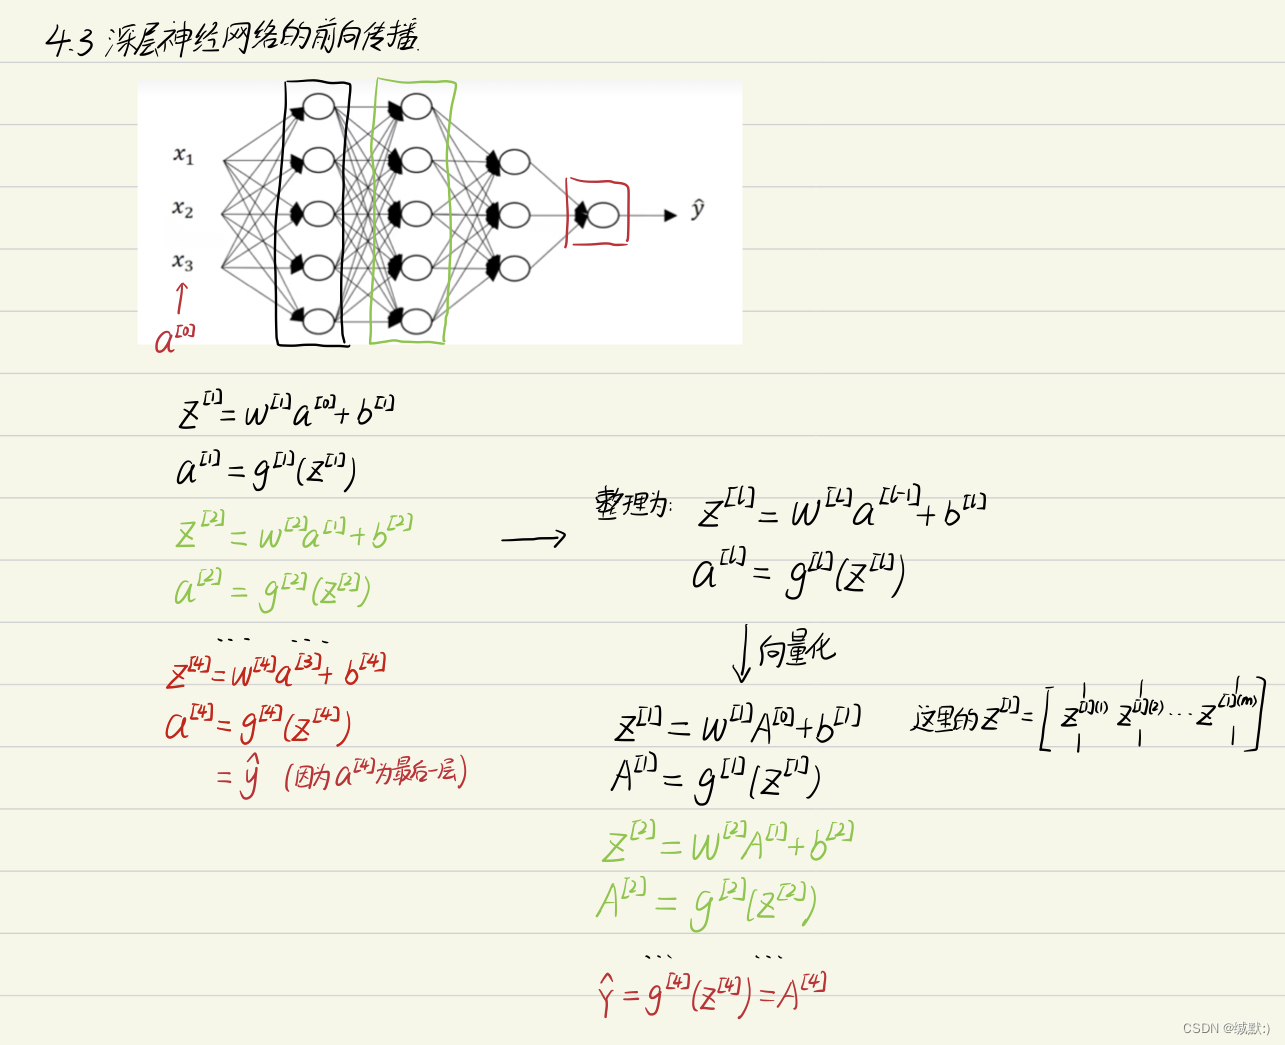 4.3 深层神经网络的前向传播
x₁
x₂
x₃
ŷ
a^[0]
z^[1] = w^[1]a^[0] + b^[1]
a^[1] = g^[1](z^[1])
z^[2] = w^[2]a^[1] + b^[2]
a^[2] = g^[2](z^[2])
... ...
z^[4] = w^[4]a^[3] + b^[4]
a^[4] = g^[4](z^[4])
= ŷ (因为a^[4]为最后一层)
整理为: z^[l] = w^[l]a^[l-1] + b^[l]
a^[l] = g^[l](z^[l])
向量化
z^[1] = w^[1]A^[0] + b^[1] 这里的z^[1] = [z^[1](1) z^[1](2) ... z^[1](m)]
A^[1] = g^[1](z^[1])
z^[2] = w^[2]A^[1] + b^[2]
A^[2] = g^[2](z^[2])
... ...
Ŷ = g^[4](z^[4]) = A^[4]
CSDN @缄默:)